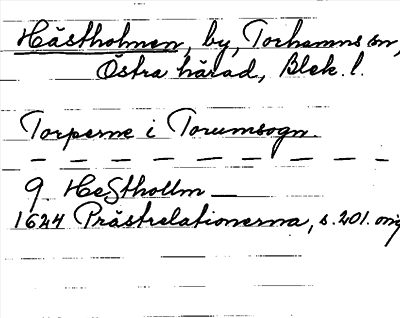 Hästholmen, by, Torhamns sn,
Östra härad, Blek. l.
Torperne i Torumsogn.
— — — — — — — — —
9 Hesthollm —
1624 Prästrelationerna, s. 201. orig